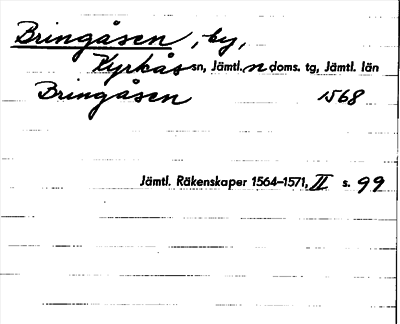 Bringåsen, by,
Kyrkås sn, Jämtl. n doms. tg, Jämtl. län
Bringåsen 1568
Jämtl. Räkenskaper 1564–1571, II s. 99